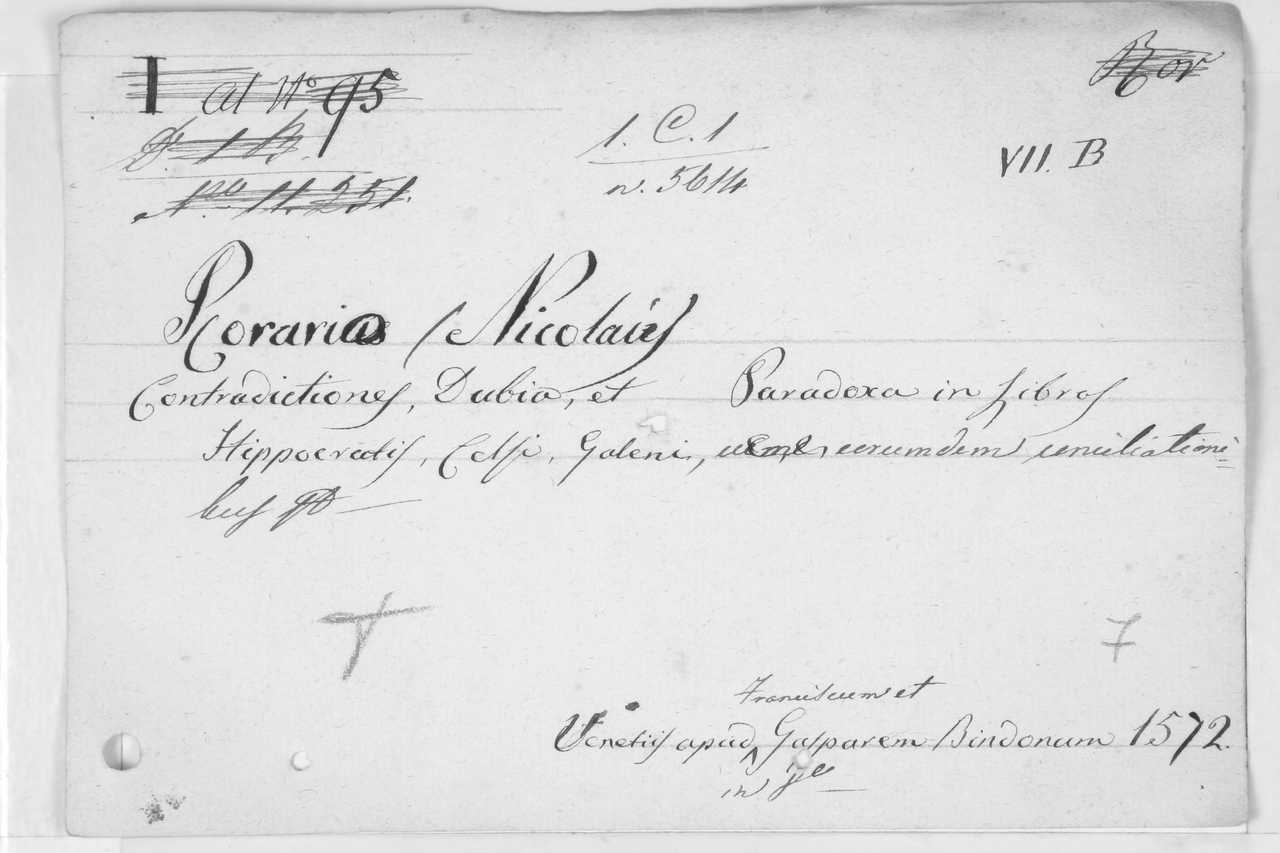 I ad N° 95
Ror
D. 1 B.
1. C. 1
VII. B
N.ro 11.251.
n. 5614
Rorarius / Nicolaus
Contradictiones, Dubia, et Paradoxa in Libros
Hippocratis, Celsi, Galeni, eorumdem conciliationi=
bus
T
7
Franciscum et
Venetiis apud Gasparem Bindonum 1572.
in